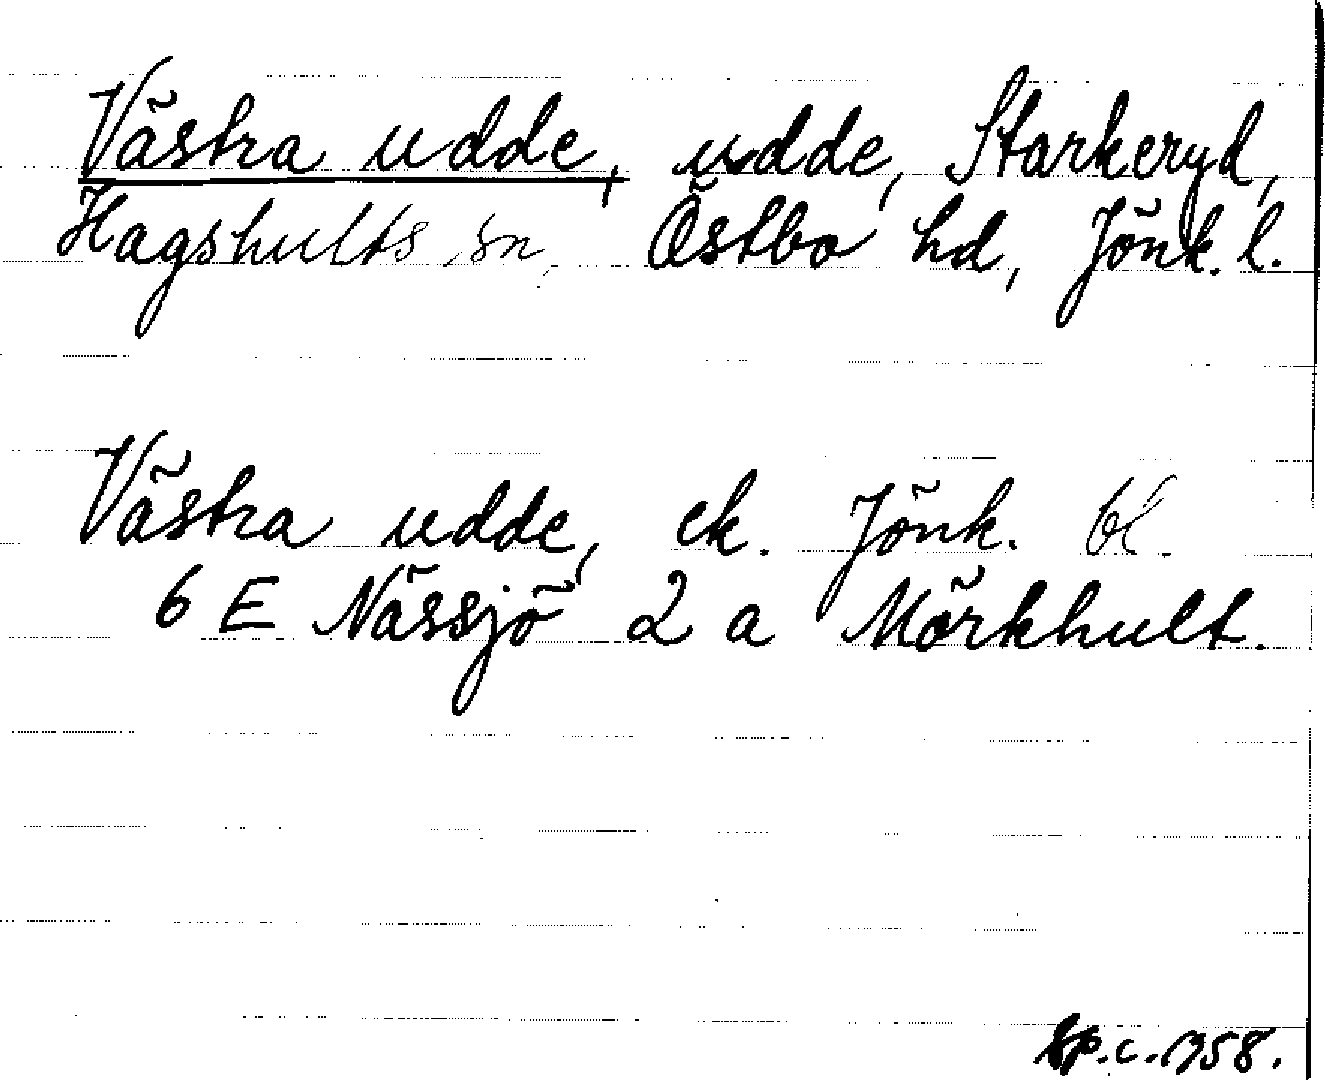 Västra udde, udde, Starkeryd,
Hagshults sn, Östbo hd, Jönk. l.
Västra udde, ek. Jönk. bl.
6 E Nässjö 2 a Mörkhult.
c. 1958.